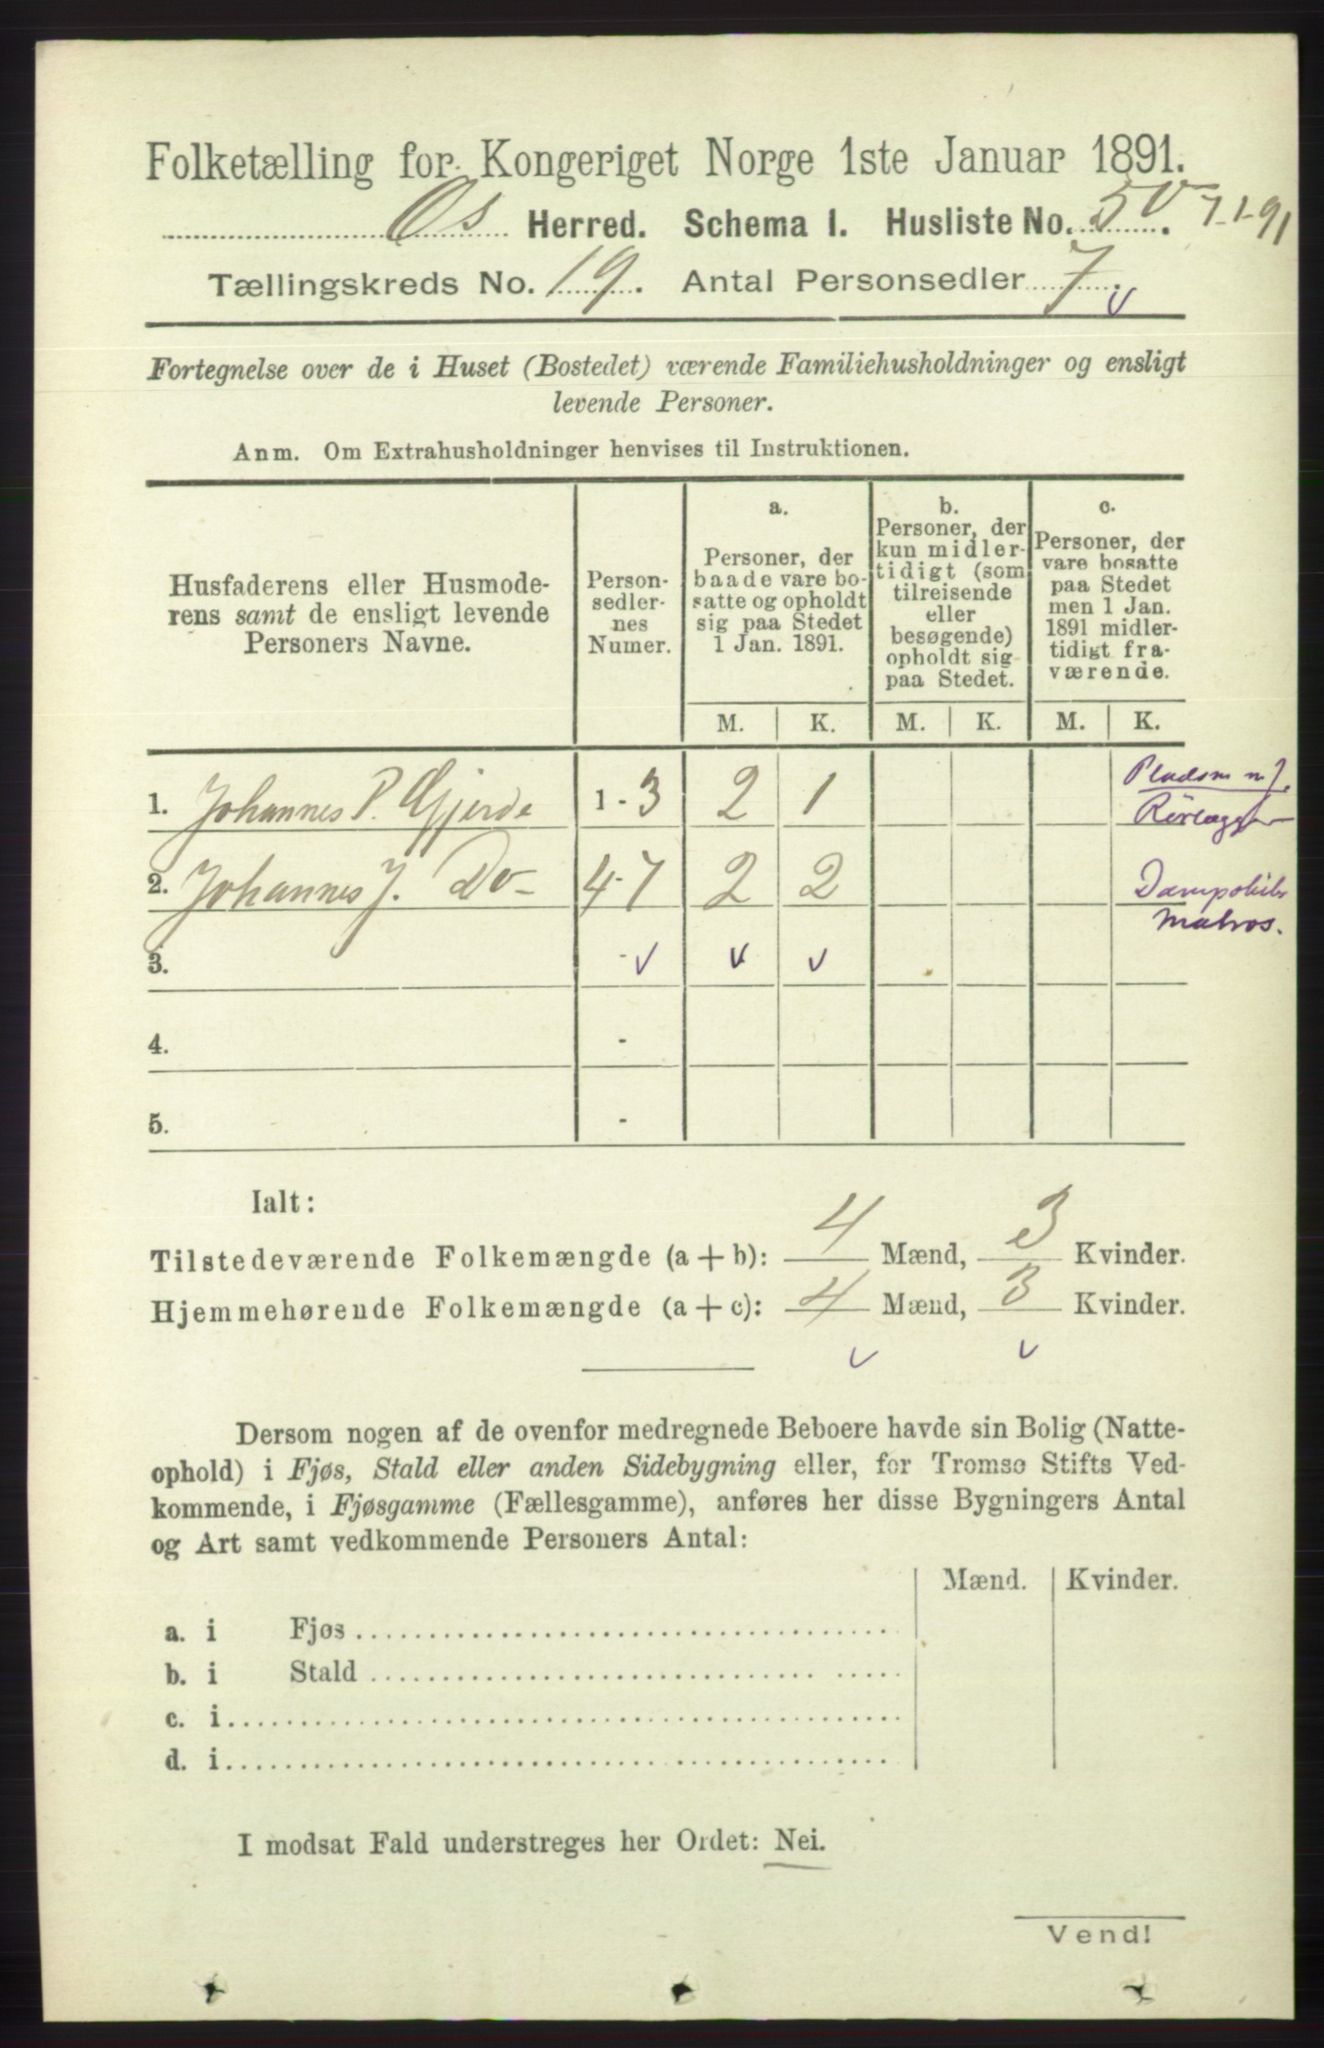 Folketælling for Kongeriget Norge 1ste Januar 1891.
Os Herred. Schema I. Husliste No. 50. 7-1-91
Tællingskreds No. 19. Antal Personsedler 7.
Fortegnelse over de i Huset (Bostedet) værende Familiehusholdninger og ensligt
levende Personer.
Anm. Om Extrahusholdninger henvises til Instruktionen.
Husfaderens eller Husmode-
rens samt de ensligt levende
Personers Navne.
Person-
sedler-
nes
Numer.
a.
Personer, der
baade vare bo-
satte og opholdt
sig paa Stedet
1 Jan. 1891.
b.
Personer, der
kun midler-
tidigt (som
tilreisende
eller
besøgende)
opholdt sig
paa Stedet.
c.
Personer, der
vare bosatte
paa Stedet
men 1 Jan.
1891 midler-
tidigt fra-
værende.
M. K. M. K. M. K.
1. Johannes P. Gjerde 1-3 2 1 Pladsm m J.
Rørlægger
2. Johannes J. Do- 4-7 2 2 Dampskibs
Matros.
3. - v v v
4. -
5. -
Ialt:
Tilstedeværende Folkemængde (a + b): 4 Mænd, 3 Kvinder.
Hjemmehørende Folkemængde (a + c): 4 Mænd, 3 Kvinder.
v v
Dersom nogen af de ovenfor medregnede Beboere havde sin Bolig (Natte-
ophold) i Fjøs, Stald eller anden Sidebygning eller, for Tromsø Stifts Ved-
kommende, i Fjøsgamme (Fællesgamme), anføres her disse Bygningers Antal
og Art samt vedkommende Personers Antal:
Mænd. Kvinder.
a. i Fjøs
b. i Stald
c. i
d. i
I modsat Fald understreges her Ordet: Nei.
Vend!